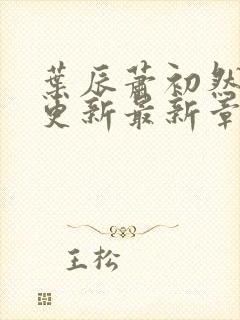 葉辰蕭初然
更新最新章
王松